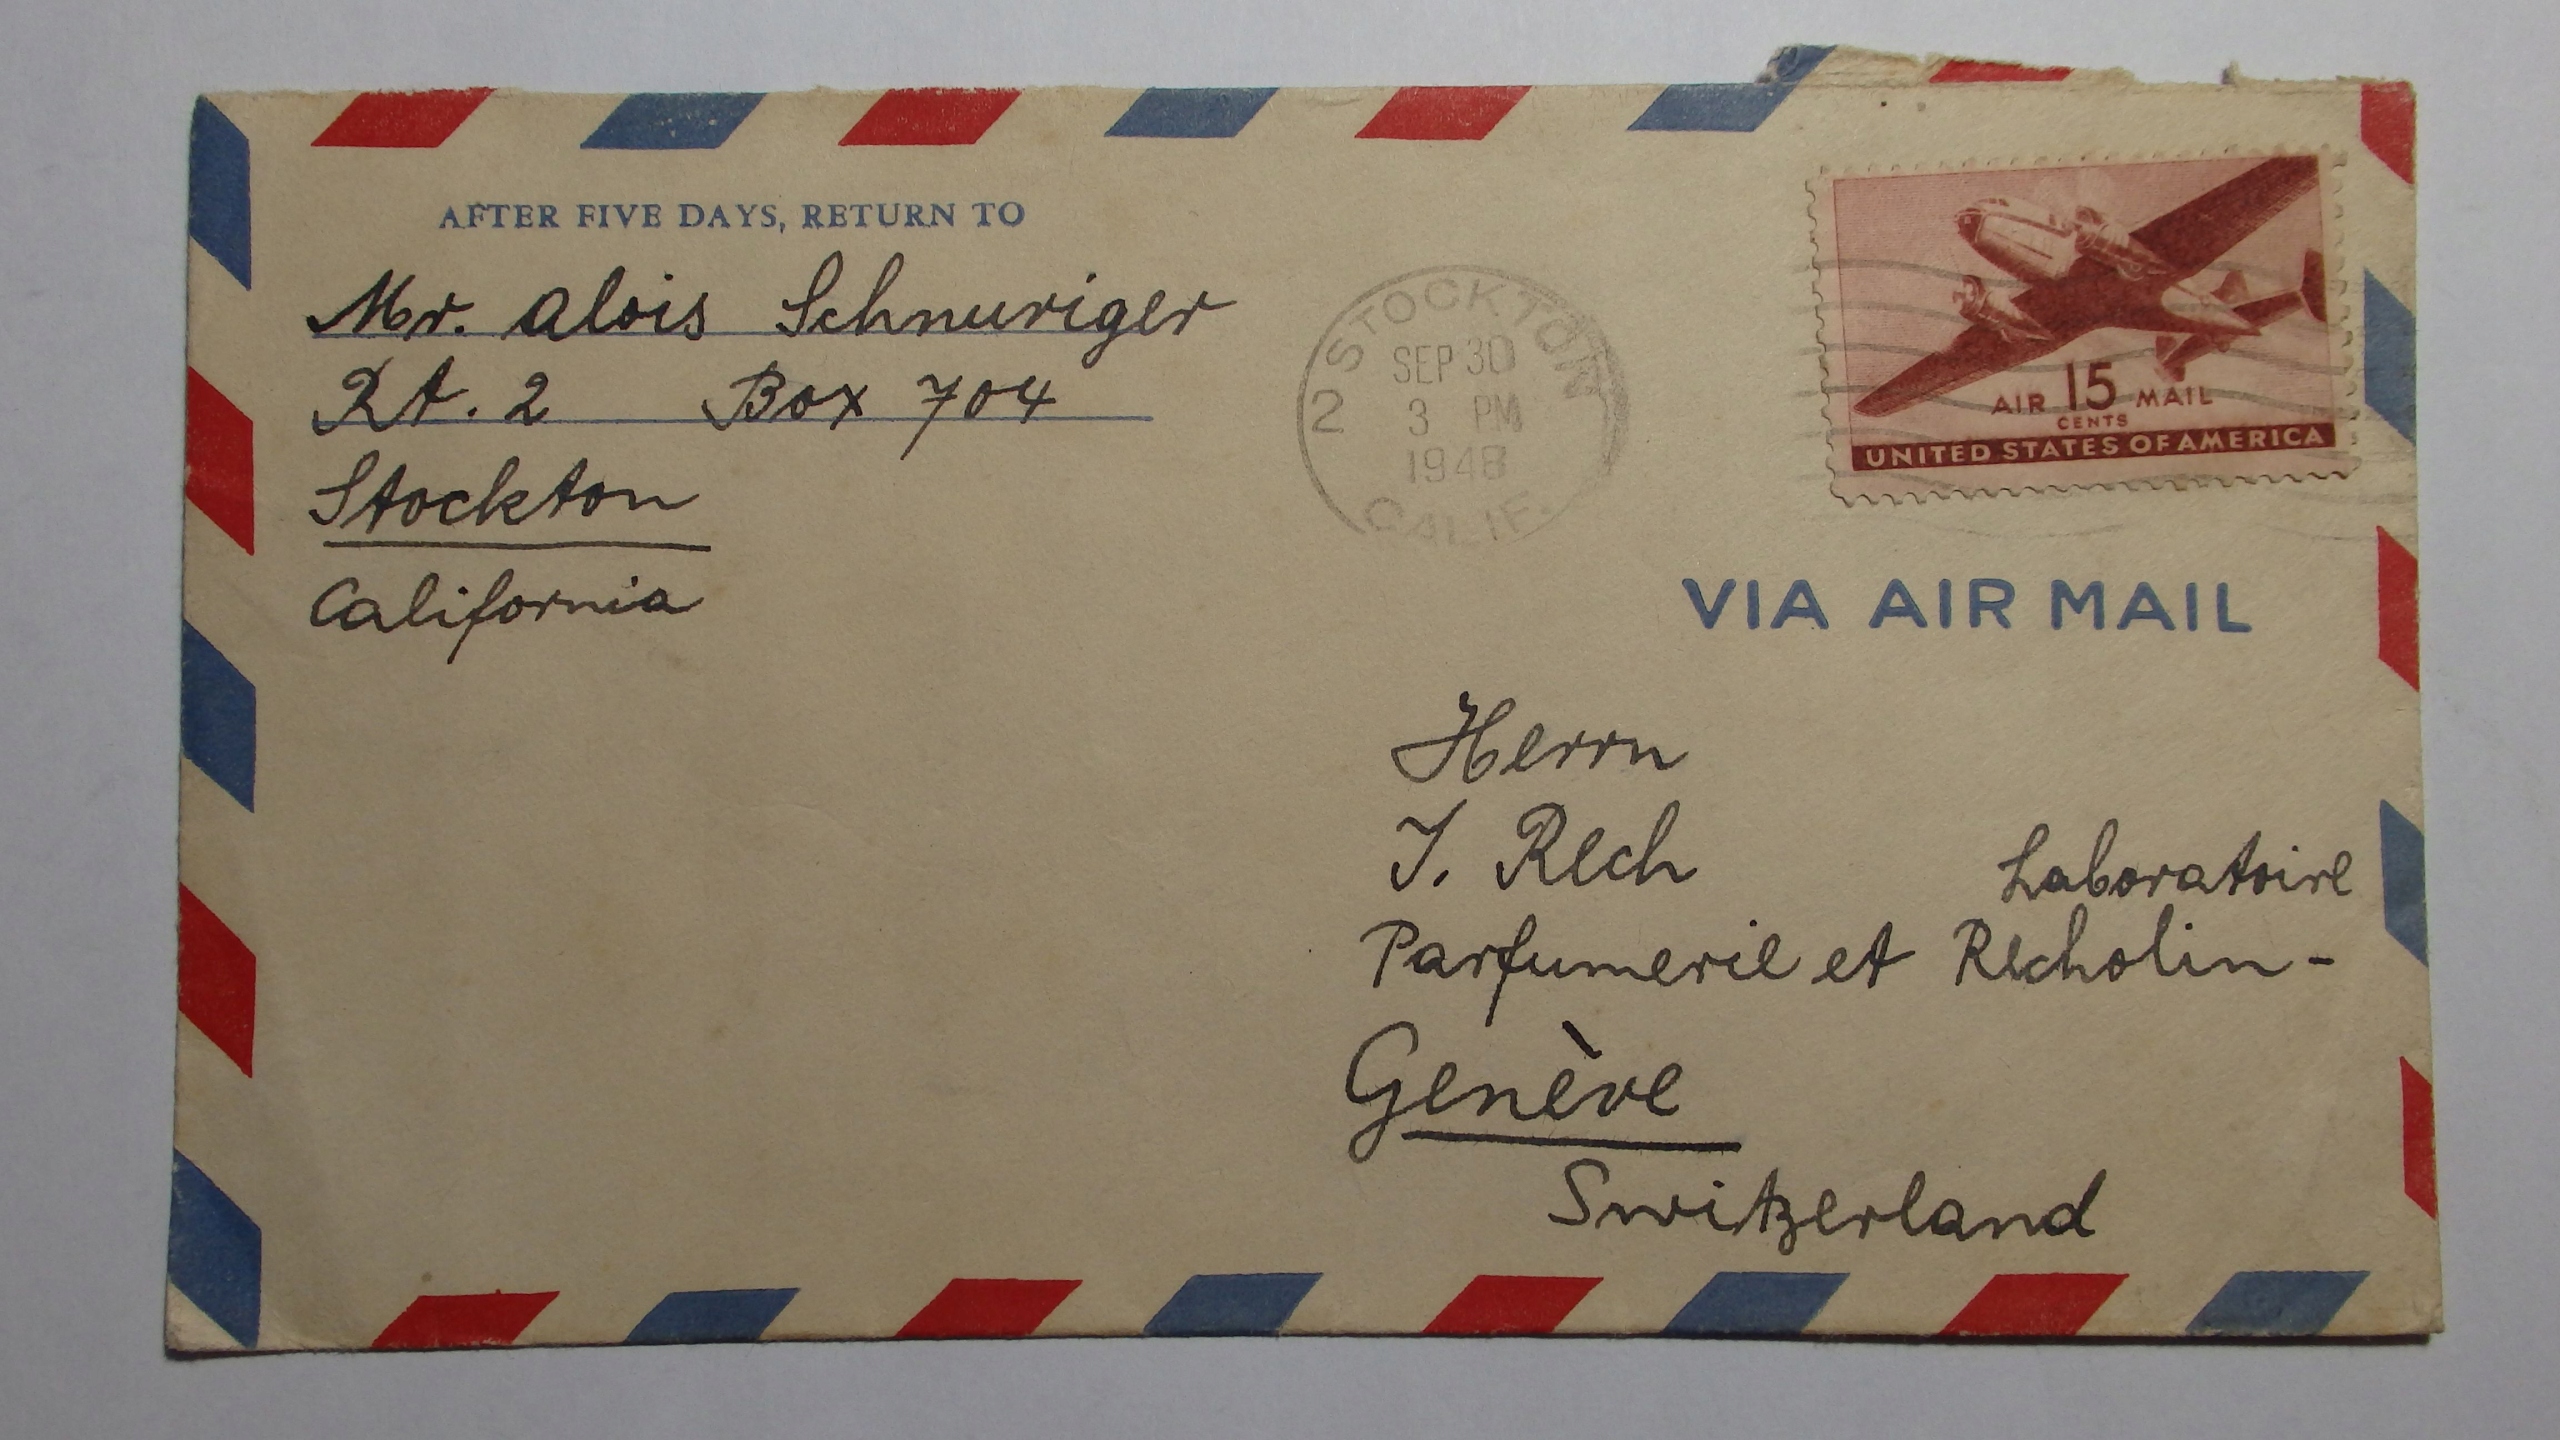 AFTER FIVE DAYS, RETURN TO
Mr. Alois Schnuriger
Rt. 2 Box 704
Stockton
California
2 STOCKTON
SEP 30
3 PM
1948
CALIF.
AIR 15 MAIL
CENTS
UNITED STATES OF AMERICA
VIA AIR MAIL
Herrn
J. Rech
Laboratoire
Parfumerie et Recholin-
Genève
Switzerland